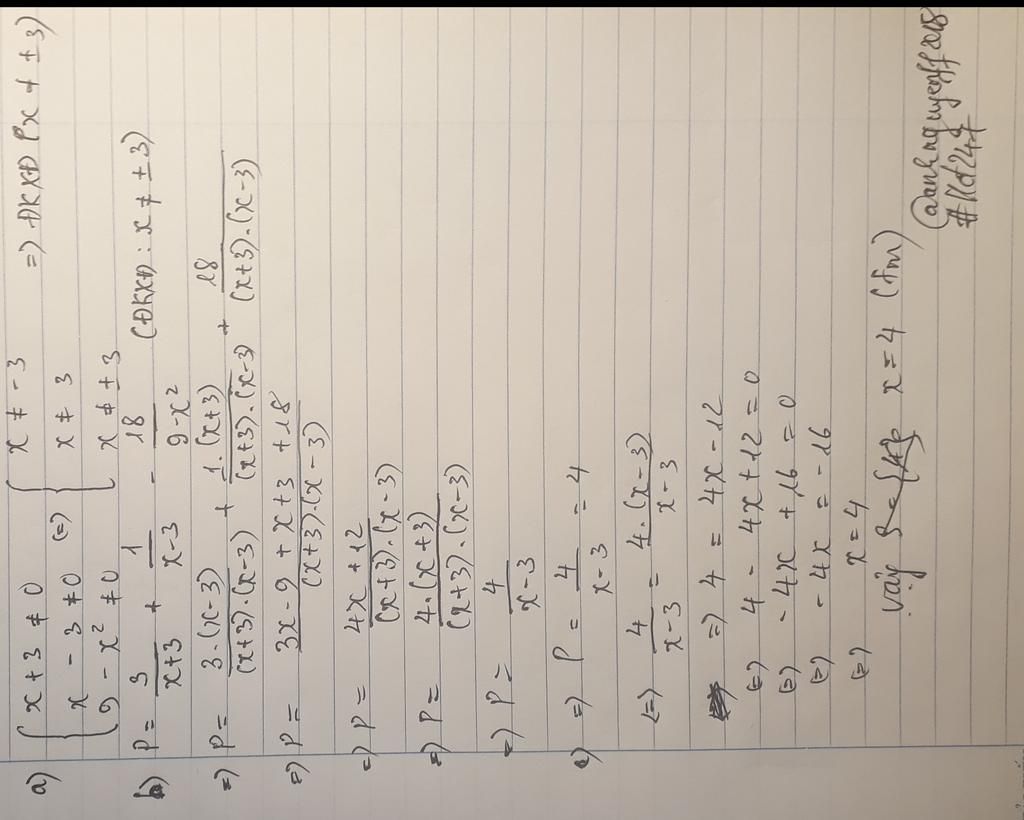 a) { x + 3 ≠ 0
x - 3 ≠ 0
9 - x² ≠ 0 (=) { x ≠ -3
x ≠ 3
x ≠ ± 3 => ĐKXĐ (x ≠ ± 3)
b) P = 3/(x+3) + 1/(x-3) - 18/(9-x²) (ĐKXĐ : x ≠ ± 3)
=) P = 3.(x-3)/((x+3).(x-3)) + 1.(x+3)/((x+3).(x-3)) + 18/((x+3).(x-3))
=) P = (3x-9 + x+3 +18)/((x+3).(x-3))
=) P = (4x +12)/((x+3).(x-3))
=) P = 4.(x+3)/((x+3).(x-3))
=) P = 4/(x-3)
c) =) P = 4/(x-3) = 4
(=) 4/(x-3) = 4.(x-3)/(x-3)
=) 4 = 4x - 12
(=) 4 - 4x + 12 = 0
(=) - 4x + 16 = 0
(=) - 4x = - 16
(=) x = 4
Vậy x = 4 (tm)
@anhnguyenff2018